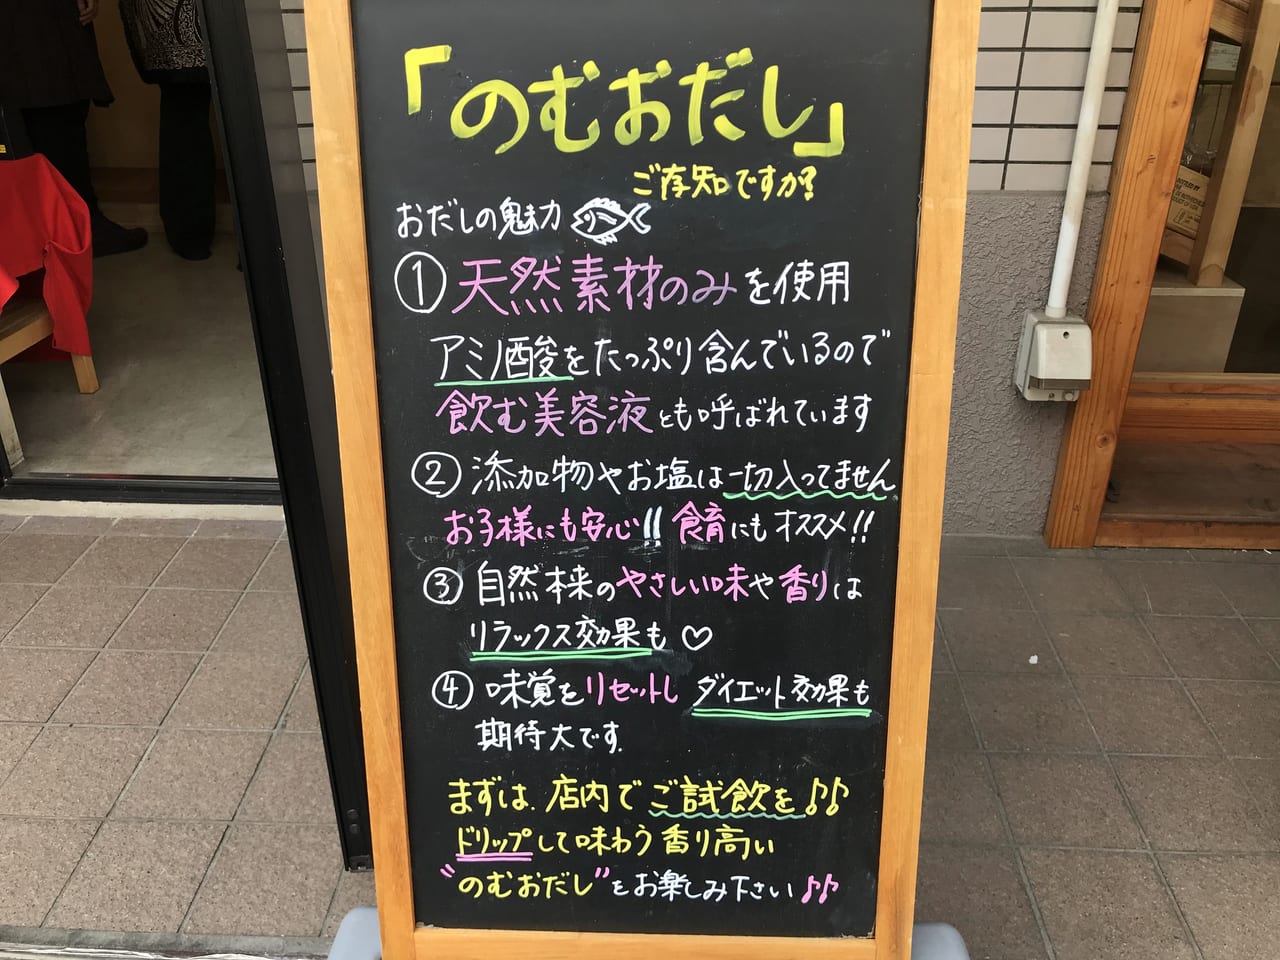 「のむおだし」
ご存知ですか?
おだしの魅力
① 天然素材のみを使用
アミノ酸をたっぷり含んでいるので
飲む美容液とも呼ばれています
② 添加物やお塩は一切入ってません
お子様にも安心!! 食育にもオススメ!!
③ 自然本来のやさしい味や香りは
リラックス効果も♡
④ 味覚をリセットし ダイエット効果も
期待大です.
まずは. 店内でご試飲を♪♪
ドリップして味わう香り高い
"のむおだし"をお楽しみ下さい♪♪